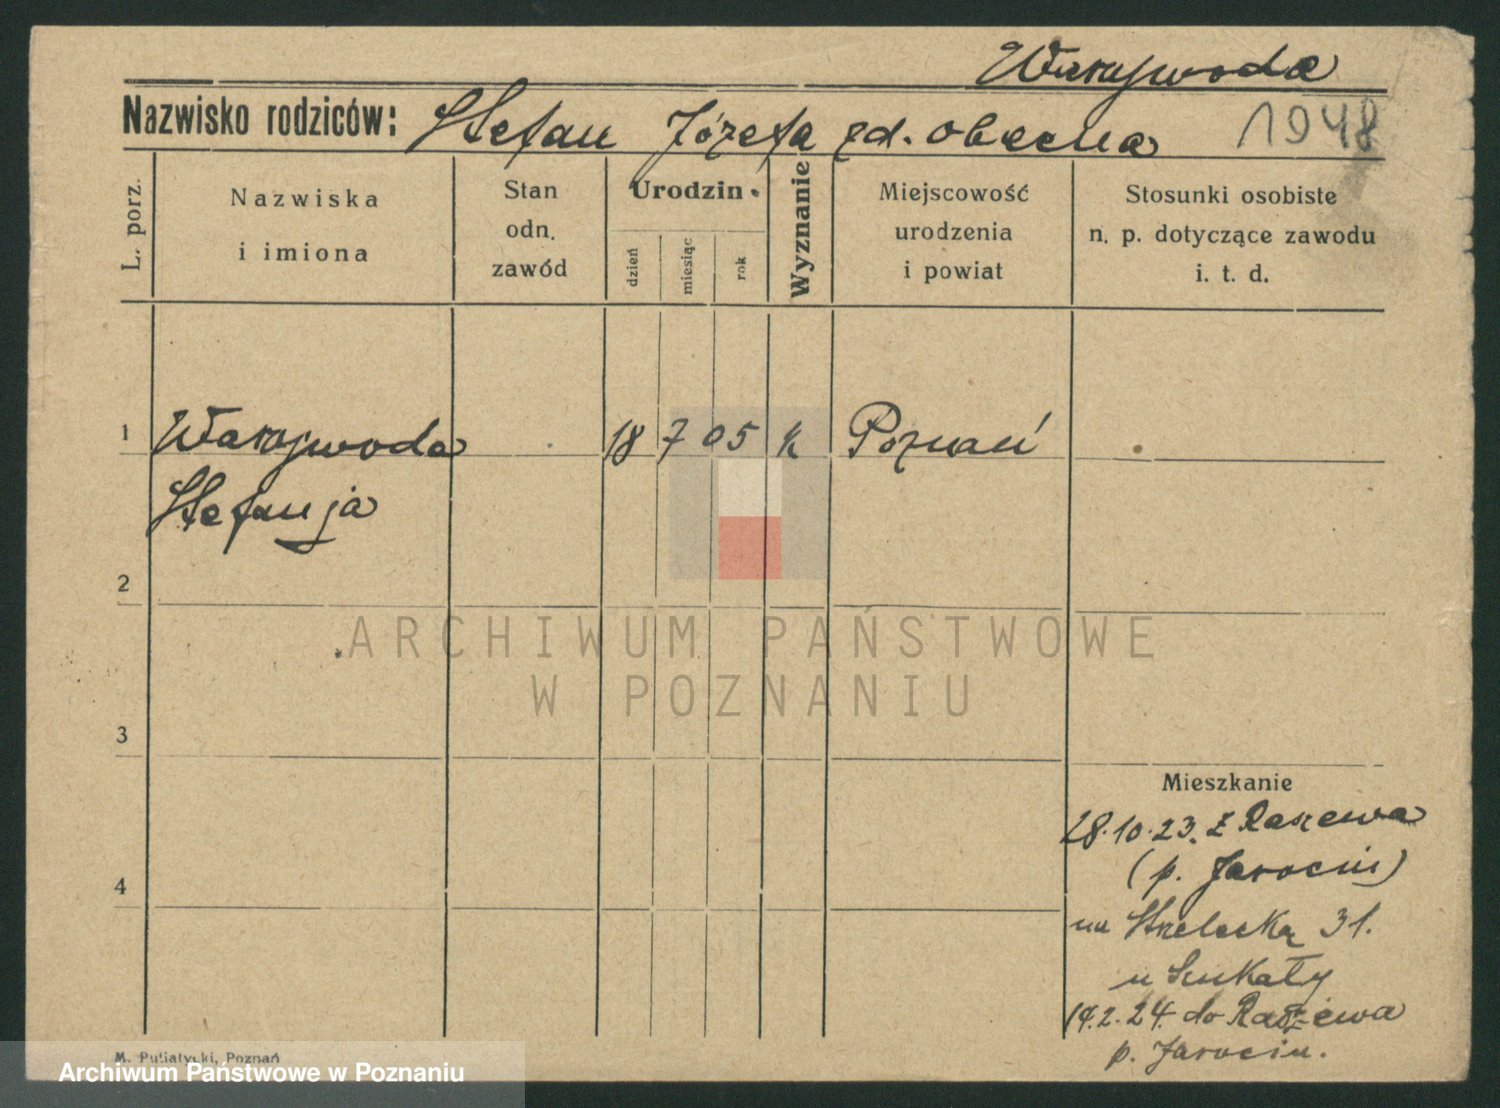 Warajwoda
Nazwisko rodziców: Stefan Józefa zd. obecna
1948
L. porz.
Nazwiska
i imiona
Stan
odn.
zawód
Urodzin
dzień
miesiąc
rok
Wyznanie
Miejscowość
urodzenia
i powiat
Stosunki osobiste
n. p. dotyczące zawodu
i. t. d.
1 Warajwoda 18 7 05 k Poznań
Stefanja
2
ARCHIWUM PAŃSTWOWE
W POZNANIU
3
Mieszkanie
28.10.23. z Raszewa
(p. Jarocin)
4
na Strzelecką 31.
u Szukały
14.2.24. do Raszewa
p. Jarocin.
M. Putiatycki, Poznań
Archiwum Państwowe w Poznaniu